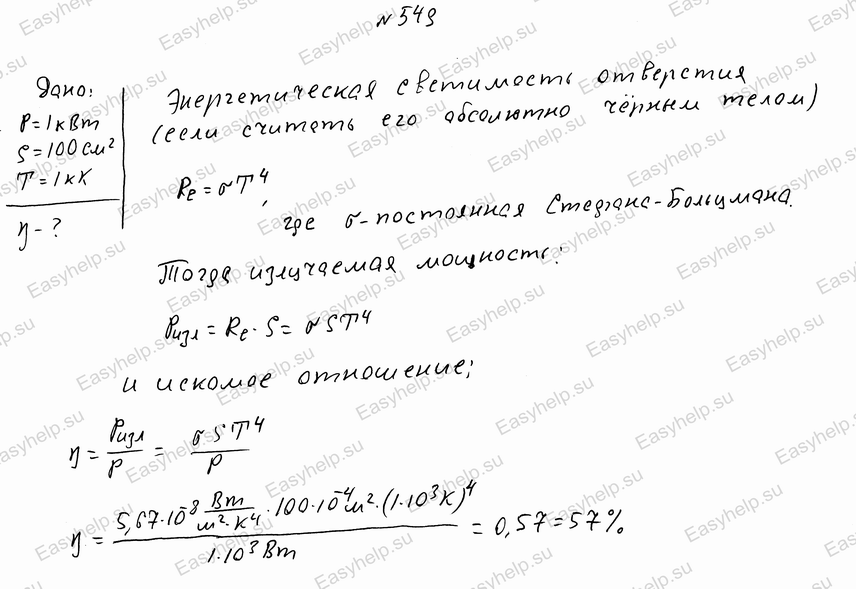 № 549
Дано:
P = 1 кВт
S = 100 см²
T = 1 кК
η - ?
Энергетическая светимость отверстия
(если считать его абсолютно чёрным телом)
Re = σT⁴,
где σ - постоянная Стефана-Больцмана.
Тогда излучаемая мощность:
Pизл = Re · S = σST⁴
и искомое отношение:
η = Pизл/P = σST⁴/P
η = (5,67·10⁻⁸ Вт/(м²·К⁴) · 100·10⁻⁴ м² · (1·10³ К)⁴)/(1·10³ Вт) = 0,57 = 57%.
Easyhelp.su